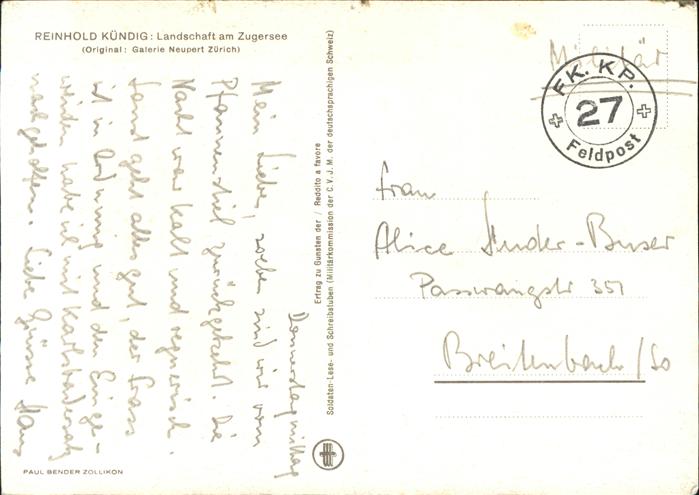 REINHOLD KÜNDIG: Landschaft am Zugersee
(Original: Galerie Neupert Zürich)
Donnerstagmittag
Mein Liebes, soeben sind wir vom
Pfannenstiel zurückgekehrt. Die
Nacht war kalt und regnerisch.
Sonst geht alles gut, der Frass
ist in Ordnung und den Einge-
weiden habe ich mit Karlsbadersalz
nachgeholfen. Liebe Grüsse Hans
PAUL BENDER ZOLLIKON
Ertrag zu Gunsten der / Reddito a favore
Soldaten-Lese- und Schreibstuben (Militärkommission der C.V.J.M. der deutschsprachigen Schweiz)
Militär
FK. KP.
27
Feldpost
Frau
Alice Studer-Buser
Passwangstr 351
Breitenbach/So